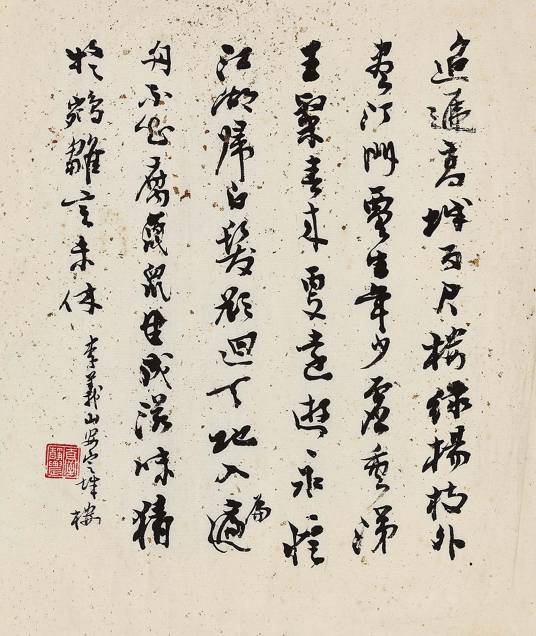 迢遞高城百尺樓綠楊枝外
盡汀洲賈生年少虛垂涕
王粲春來更遠遊永憶
江湖歸白髮欲迴天地入扁
舟不知腐鼠成滋味猜
意鵷雛竟未休
李義山安定城樓